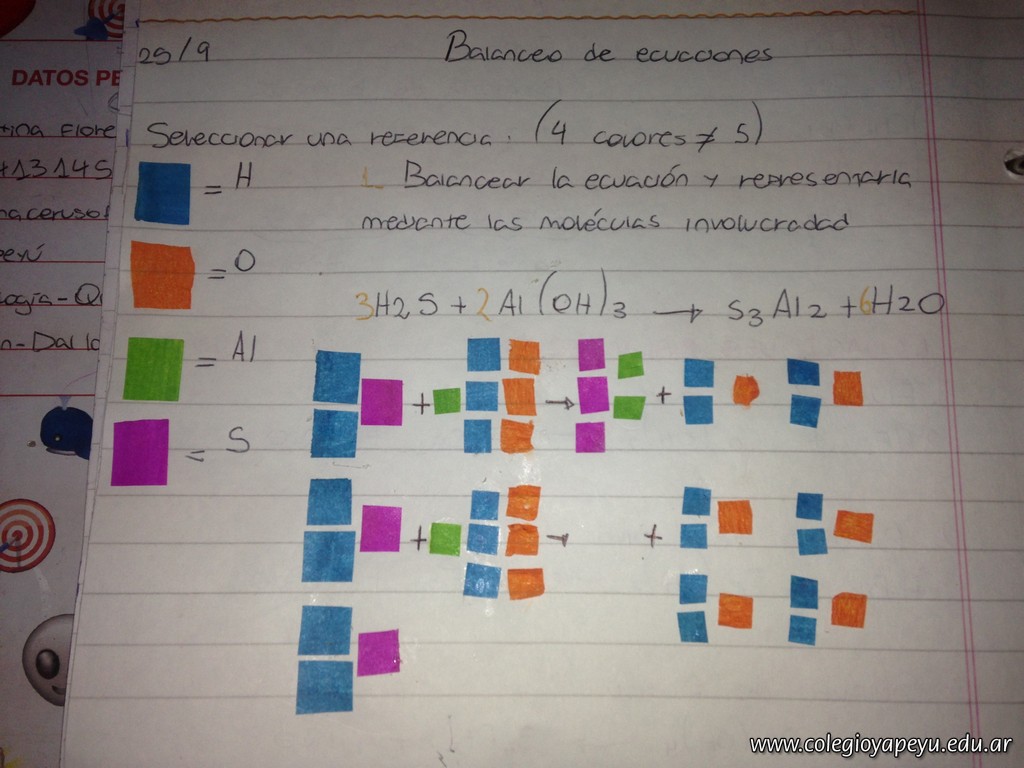 DATOS PE
25/9
Balanceo de ecuaciones
Seleccionar una referencia. (4 colores ≠ S)
= H
1_ Balancear la ecuación y representarla
mediante las moléculas involucradad
= O
3H2S + 2Al(OH)3 → S3Al2 + 6H2O
= Al
+ → +
= S
+ → +
www.colegioyapeyu.edu.ar